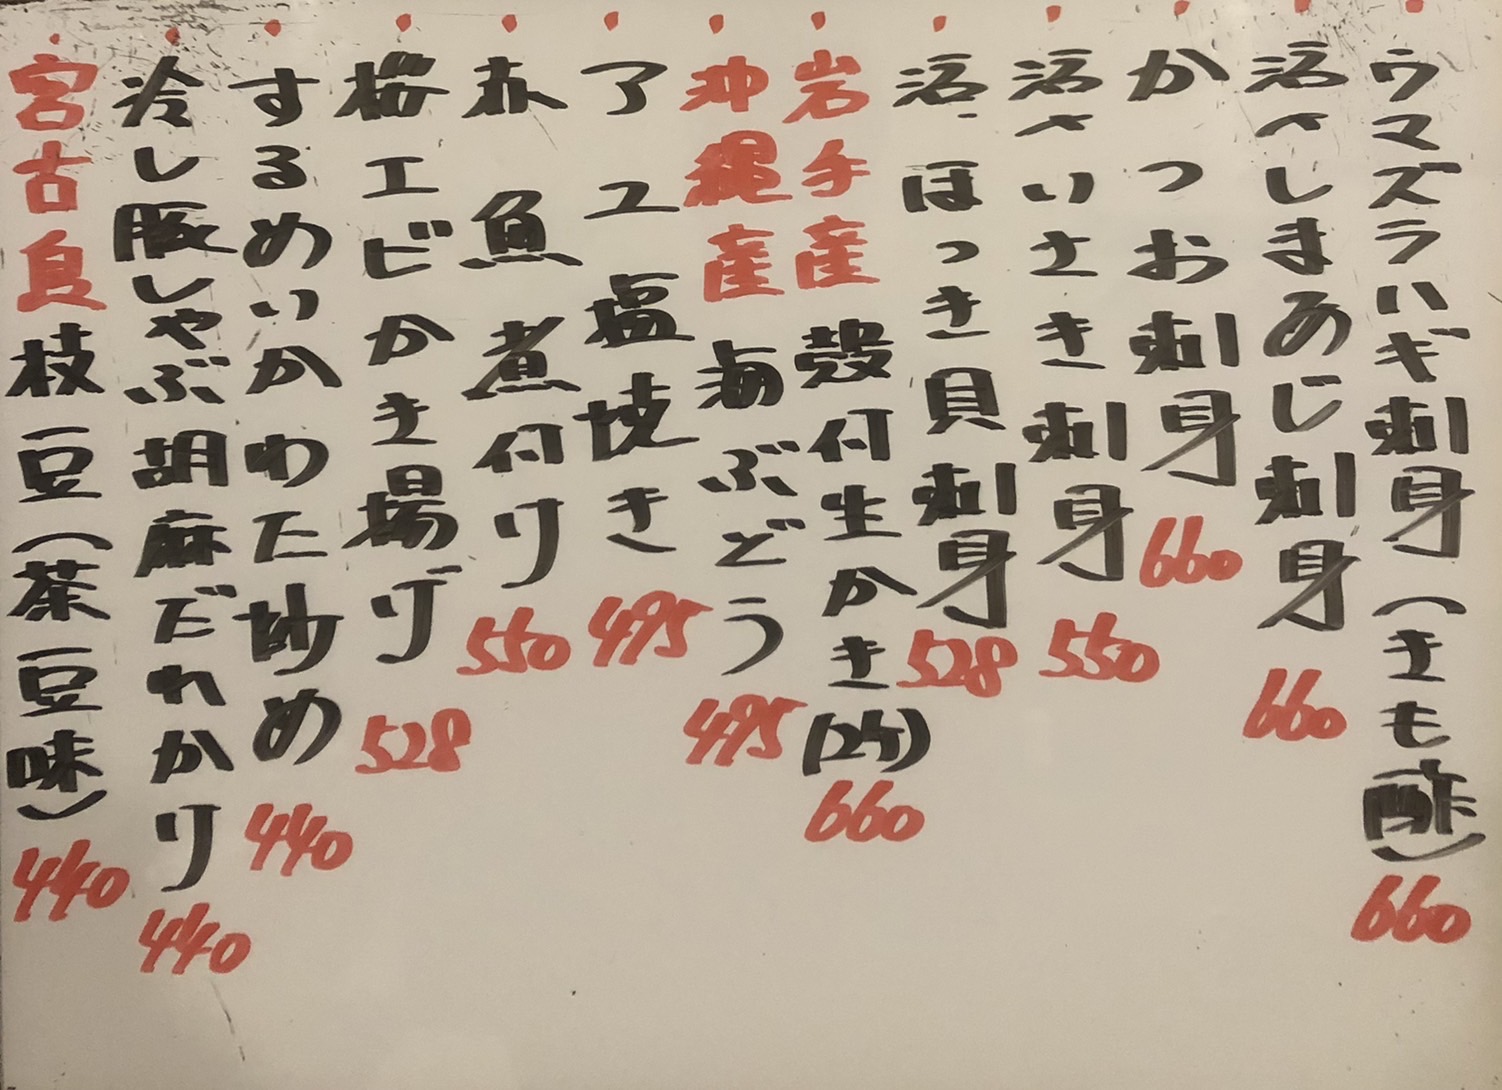 ウマズラハギ刺身(きも酢)660
活〆しまあじ刺身660
かつお刺身660
活〆いさき刺身550
活ほっき貝刺身528
岩手産殻付生かき(2ケ)660
沖縄産海ぶどう495
アユ塩焼き495
赤魚煮付け550
桜エビかき揚げ528
するめいかわた炒め440
冷し豚しゃぶ胡麻だれかけ440
宮古島枝豆(茶豆味)440